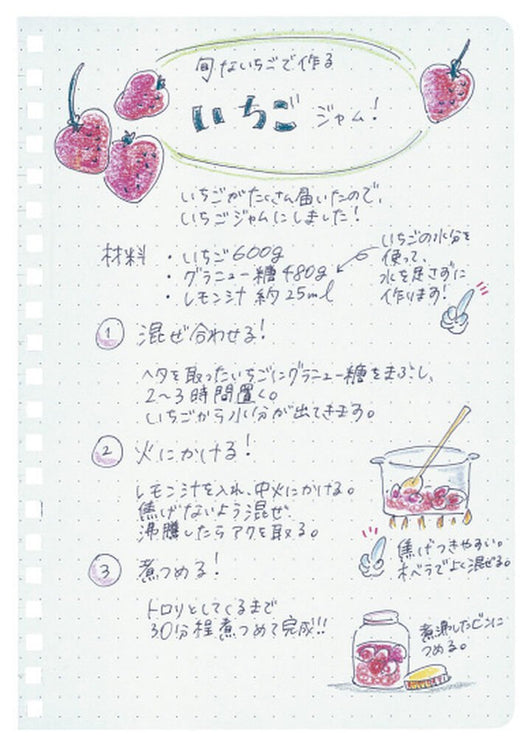 旬ないちごで作る
いちごジャム!
いちごがたくさん届いたので、
いちごジャムにしました!
材料 ・いちご600g
・グラニュー糖480g
・レモン汁 約25ml
いちごの水分を
使って、
水を足さずに
作ります!
1 混ぜ合わせる!
ヘタを取ったいちごにグラニュー糖をまぶし、
2〜3時間置く。
いちごから水分が出てきます。
2 火にかける!
レモン汁を入れ、中火にかける。
焦げないよう混ぜ、
沸騰したらアクを取る。
焦げつきやすい。
木ベラでよく混ぜる。
3 煮つめる!
トロリとしてくるまで
30分程煮つめて完成!!
煮沸したビンに
つめる。